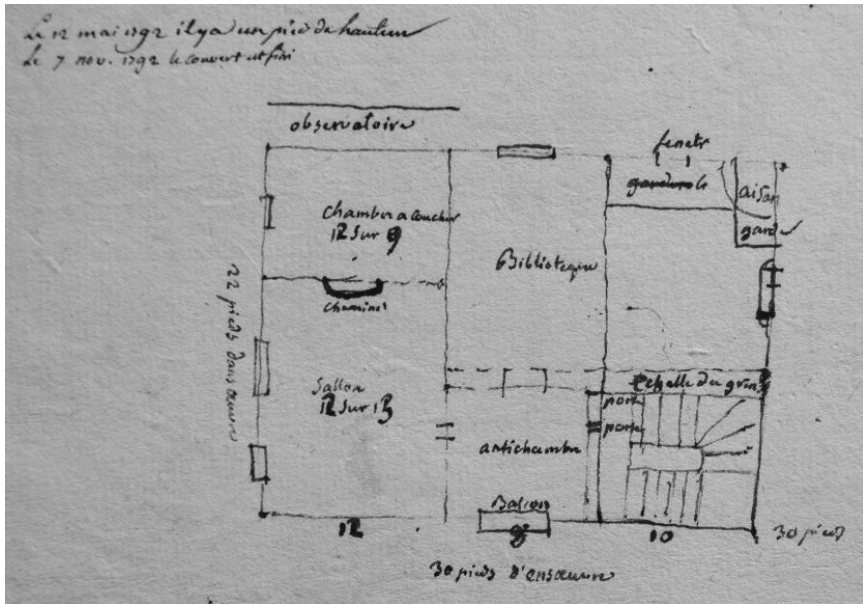 Le 12 mai 1792 il y a un pied de hauteur
Le 7 nov. 1792 le couvert est fini
observatoire
fenetr
garderobe
aisan
garde
Chambre a coucher
12 sur 9
Biblioteque
cheminee
22 pieds dans œuvre
Sallon
12 sur 13
Echelle du gren
port
porte
antichambre
Balcon
12
9
10
30 pieds
30 pieds d'ans œuvre